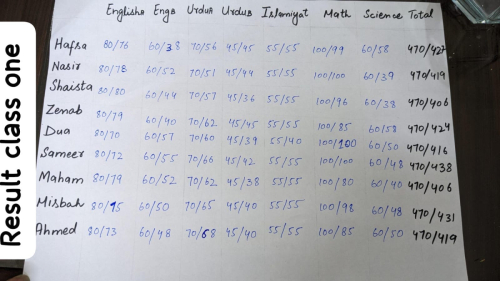 Result class one
EnglishA EngB UrduA UrduB Islamiyat Math Science Total
Hafsa 80/76 60/38 70/56 45/45 55/55 100/99 60/58 470/427
Nasir 80/78 60/52 70/51 45/44 55/55 100/100 60/39 470/419
Shaista 80/80 60/44 70/57 45/36 55/55 100/96 60/38 470/406
Zenab 80/79 60/40 70/62 45/45 55/55 100/85 60/58 470/424
Dua 80/70 60/57 70/60 45/39 55/40 100/100 60/50 470/416
Sameer 80/72 60/55 70/66 45/42 55/55 100/100 60/48 470/438
Maham 80/79 60/52 70/62 45/38 55/55 100/80 60/40 470/406
Misbah 80/75 60/50 70/65 45/40 55/55 100/98 60/48 470/431
Ahmed 80/73 60/48 70/68 45/40 55/55 100/85 60/50 470/419